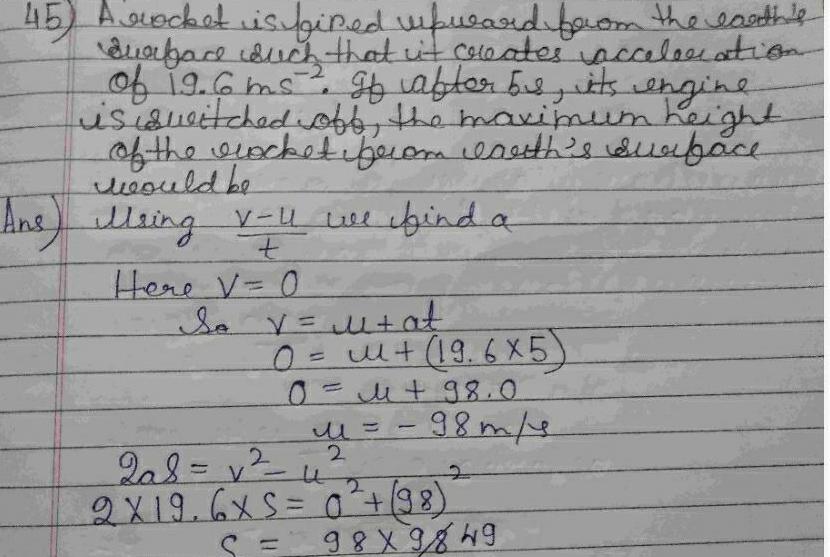 45) A rocket is fired upward from the earth's
surface such that it creates acceleration
of 19.6 ms⁻². If after 5s, its engine
is switched off, the maximum height
of the rocket from earth's surface
would be
Ans) Using v-u/t we find a
Here v = 0
So v = u + at
0 = u + (19.6 × 5)
0 = u + 98.0
u = - 98 m/s
2aS = v² - u²
2 × 19.6 × S = 0² + (98)²
S = 98 × 98 49